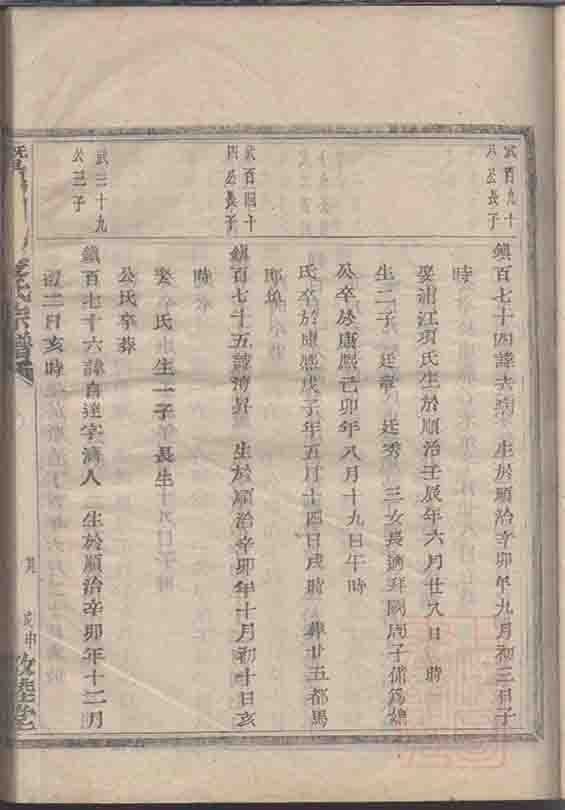 武百九十
八公長子
鎮百七十四諱去病 生於順治辛卯年九月初三日子
時
娶浦江項氏生於順治壬辰年六月廿八日 時
生二子 廷章 廷秀 三女長適拜岡周子備爲媳
公卒於康熙己卯年八月十九日午時
氏卒於康熙戊子年五月十四日戌時 葬廿五都馬
郎墳
武百四十
四公長子
鎮百七十五諱 昇 生於順治辛卯年十月初十日亥
時
娶 氏 生一子 長生
公氏卒葬
武二十九
公三子
鎮百七十六諱自達字濟人 生於順治辛卯年十二月
初二日亥時
氏宗譜
戊申
敦睦堂